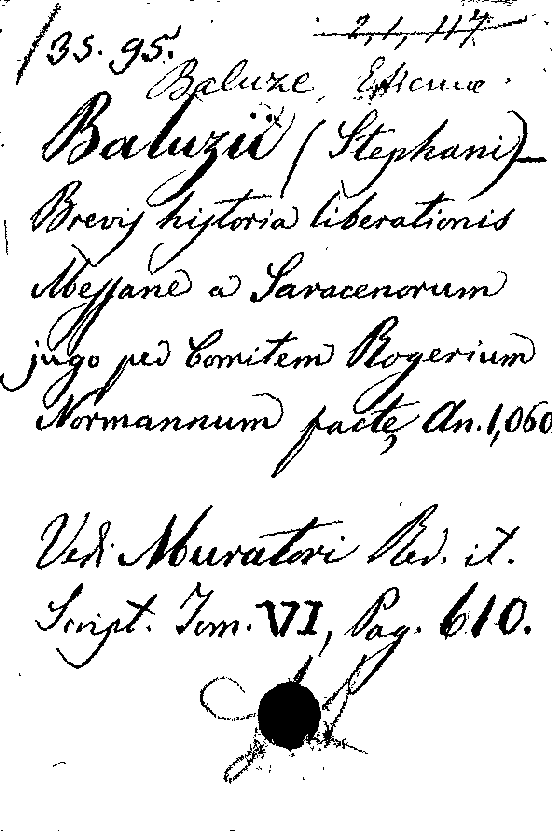 2,1,117
135.95.
Baluze, Etienne.
Baluzii (Stephani)—
Brevis historia liberationis
Messane a Saracenorum
jugo per Comitem Rogerium
Normannum factę An. 1,060
Vedi Muratori Rer. it.
Script. Tom. VI, Pag. 610.